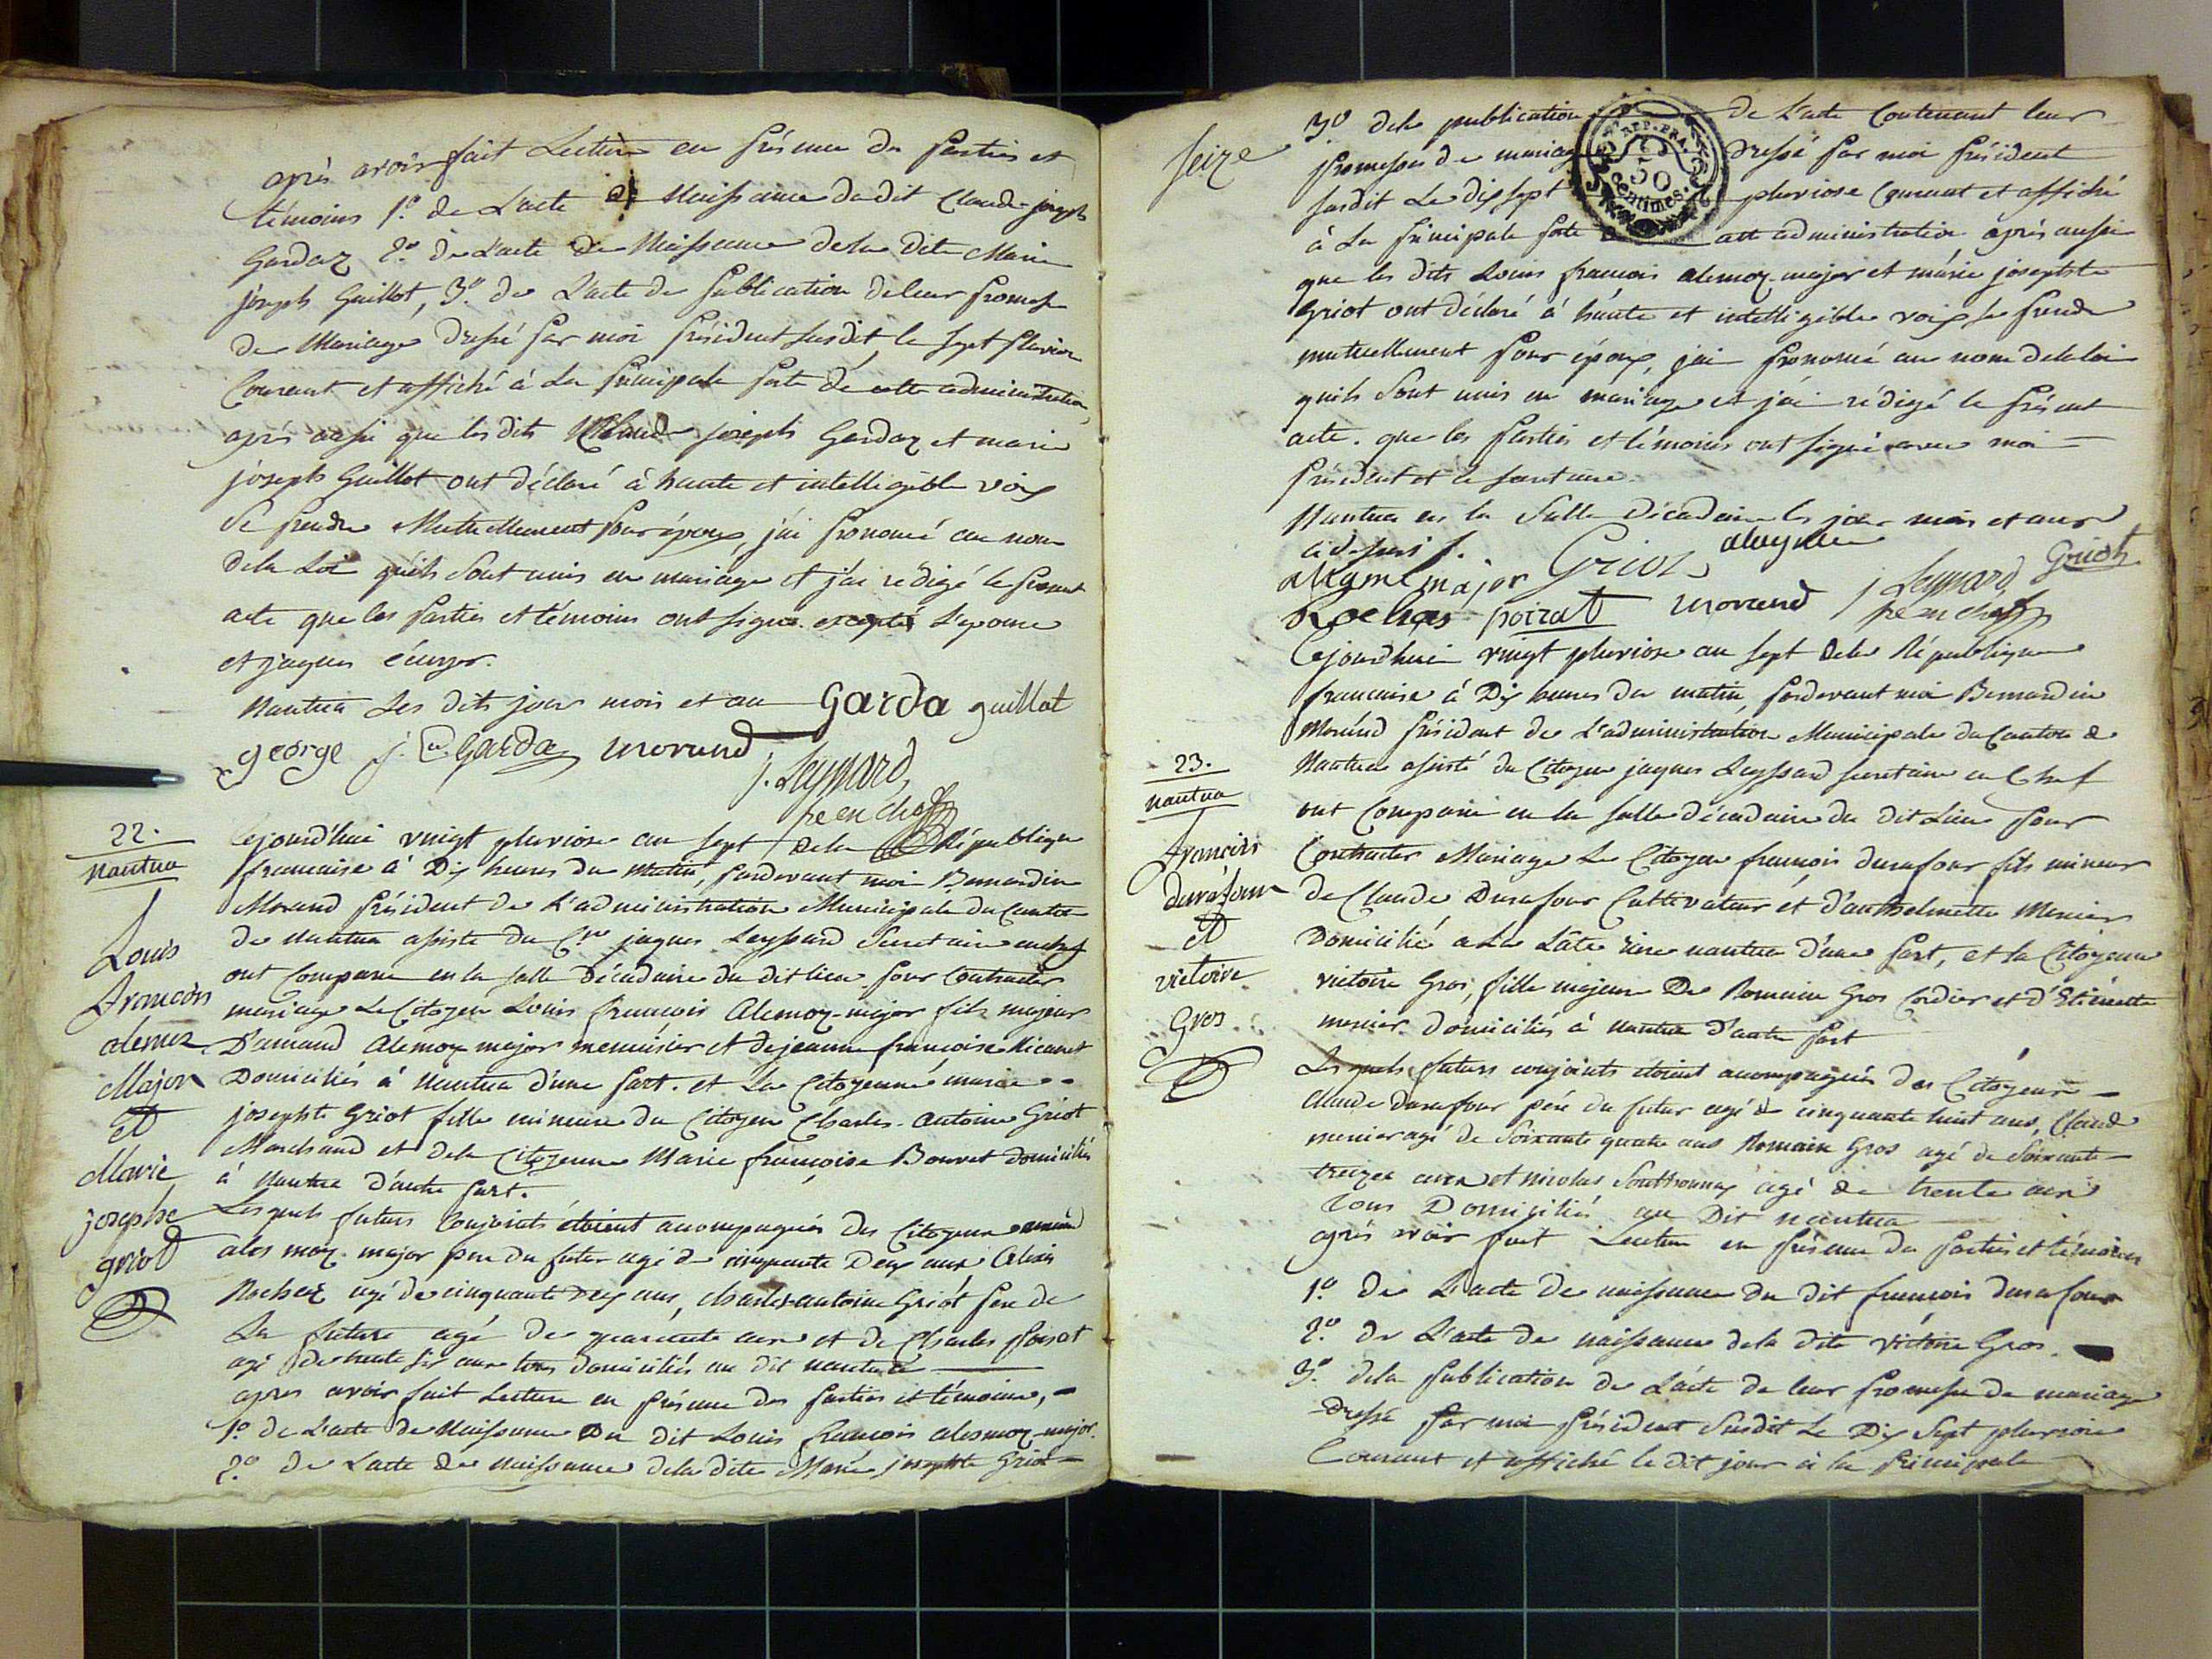 après avoir fait Lecture en présence des parties et
témoins 1.º de L'acte de Naissance du dit Claude joseph
Gardaz 2.º de L'acte de Naissance de la dite Marie
joseph Guillot, 3.º de L'acte de publication de leur promesse
de Mariage dressé par moi président susdit le sept pluviose
Courant et affiché à La principale porte de cette administration,
après aussi que les dits Claude joseph Gardaz et marie
joseph Guillot ont déclaré à haute et intelligible voix
se prendre Mutuellement pour époux, j'ai prononcé au nom
de la Loi qu'ils sont unis en mariage et j'ai rédigé le present
acte que les parties et témoins ont signé excepté L'epouse
et jaques
Nantua Les dits jour mois et an Garda guillot
george j. C Garda morand
j. Leyssard
sre en cheff
22.
nantua
Louis
francois
alemoz
Major
Et
Marie
josephe
griot
Cejourd'hui vingt pluviose an sept de la République
francaise à Dix heures du matin, pardevant moi Bernardin
Morand président de L'administration Municipale du Canton
de Nantua assisté du Cen jaques Leyssard Secretaire en chef
ont Comparu en la salle Décadaire du dit lieu pour Contracter
mariage Le Citoyen Louis francois Alemoz-major fils majeur
D'amand Alemoz major menuisier et de jeanne francoise Ricanet
Domiciliés à Nantua d'une part. et La Citoyenne marie
josephte Griot fille mineure du Citoyen Charles-Antoine Griot
Marchand et de la Citoyenne Marie françoise Bouvet domiciliés
à Nantua d'autre part.
Lesquels futurs Conjoints étoient accompagnés des Citoyens amand
alesmoz-major pere du futur agé de cinquante Deux ans Alexis
Rochez agé de cinquante Dix ans, charles-antoine Griot pere de
La future agé de quarante ans et de Charles poizat
agé de trente six ans tous domiciliés au dit nantua
apres avoir fait Lecture en présence des parties et témoins,
1.º de L'acte de Naissance Du dit Louis francois alesmoz-major.
2.º de L'acte de naissance de la dite Marie josephte Griot
seize
3.º de la publication de L'acte Contenant leur
promesses de mariage dressé par moi président
susdit Le dix sept pluviose Courant et affiché
à La principale porte de cette administration après aussi
que les dits Louis francois alemoz-major et marie josephte
Griot ont déclaré à haute et intelligible voix se prendre
mutuellement pour époux, j'ai prononcé au nom de la loi
qu'ils sont unis en mariage et j'ai rédigé le présent
acte. que les parties et témoins ont signé avec moi
président et le secretaire.
Nantua en la Salle Décadaire les jour mois et an
ci dessus
major Griot Griot
Rochas poizat morand j Leyssard
sre en cheff
REP. FRA.
50
centimes.
23.
nantua
francois
durafour
Et
victoire
Gros
Cejourdhui vingt pluviose an sept de la République
francaise à Dix heures du matin, pardevant moi Bernardin
Morand président de L'administration Municipale du Canton de
Nantua assisté du Citoyen jaques Leyssard secretaire en Chef
ont Comparu en la salle décadaire du dit Lieu pour
Contracter Mariage Le Citoyen francois durafour fils mineur
de Claude Durafour Cultivateur et d'anthelmette Mercier
Domicilié a La riere nantua d'une part, et la Citoyenne
victoire Gros, fille majeure De Romain Gros Cordier et d'Etiennette
mercier domiciliés à nantua D'autre part
Lesquels futurs conjoints étoient accompagnés des Citoyens
Claude Durafour pere du futur agé de cinquante huit ans, Claude
mercier agé de soixante quatre ans Romain Gros agé de Soixante
treize ans et nicolas agé de trente ans
tous Domiciliés au Dit nantua
après avoir fait Lecture en présence des parties et témoins
1.º de L'acte de naissance du dit francois durafour
2.º de L'acte de naissance de la dite Victoire Gros.
3.º de la publication de L'acte de leur promesse de mariage
dressé par moi président Susdit Le Dix Sept pluviose
Courant et affiché le dit jour à la principale